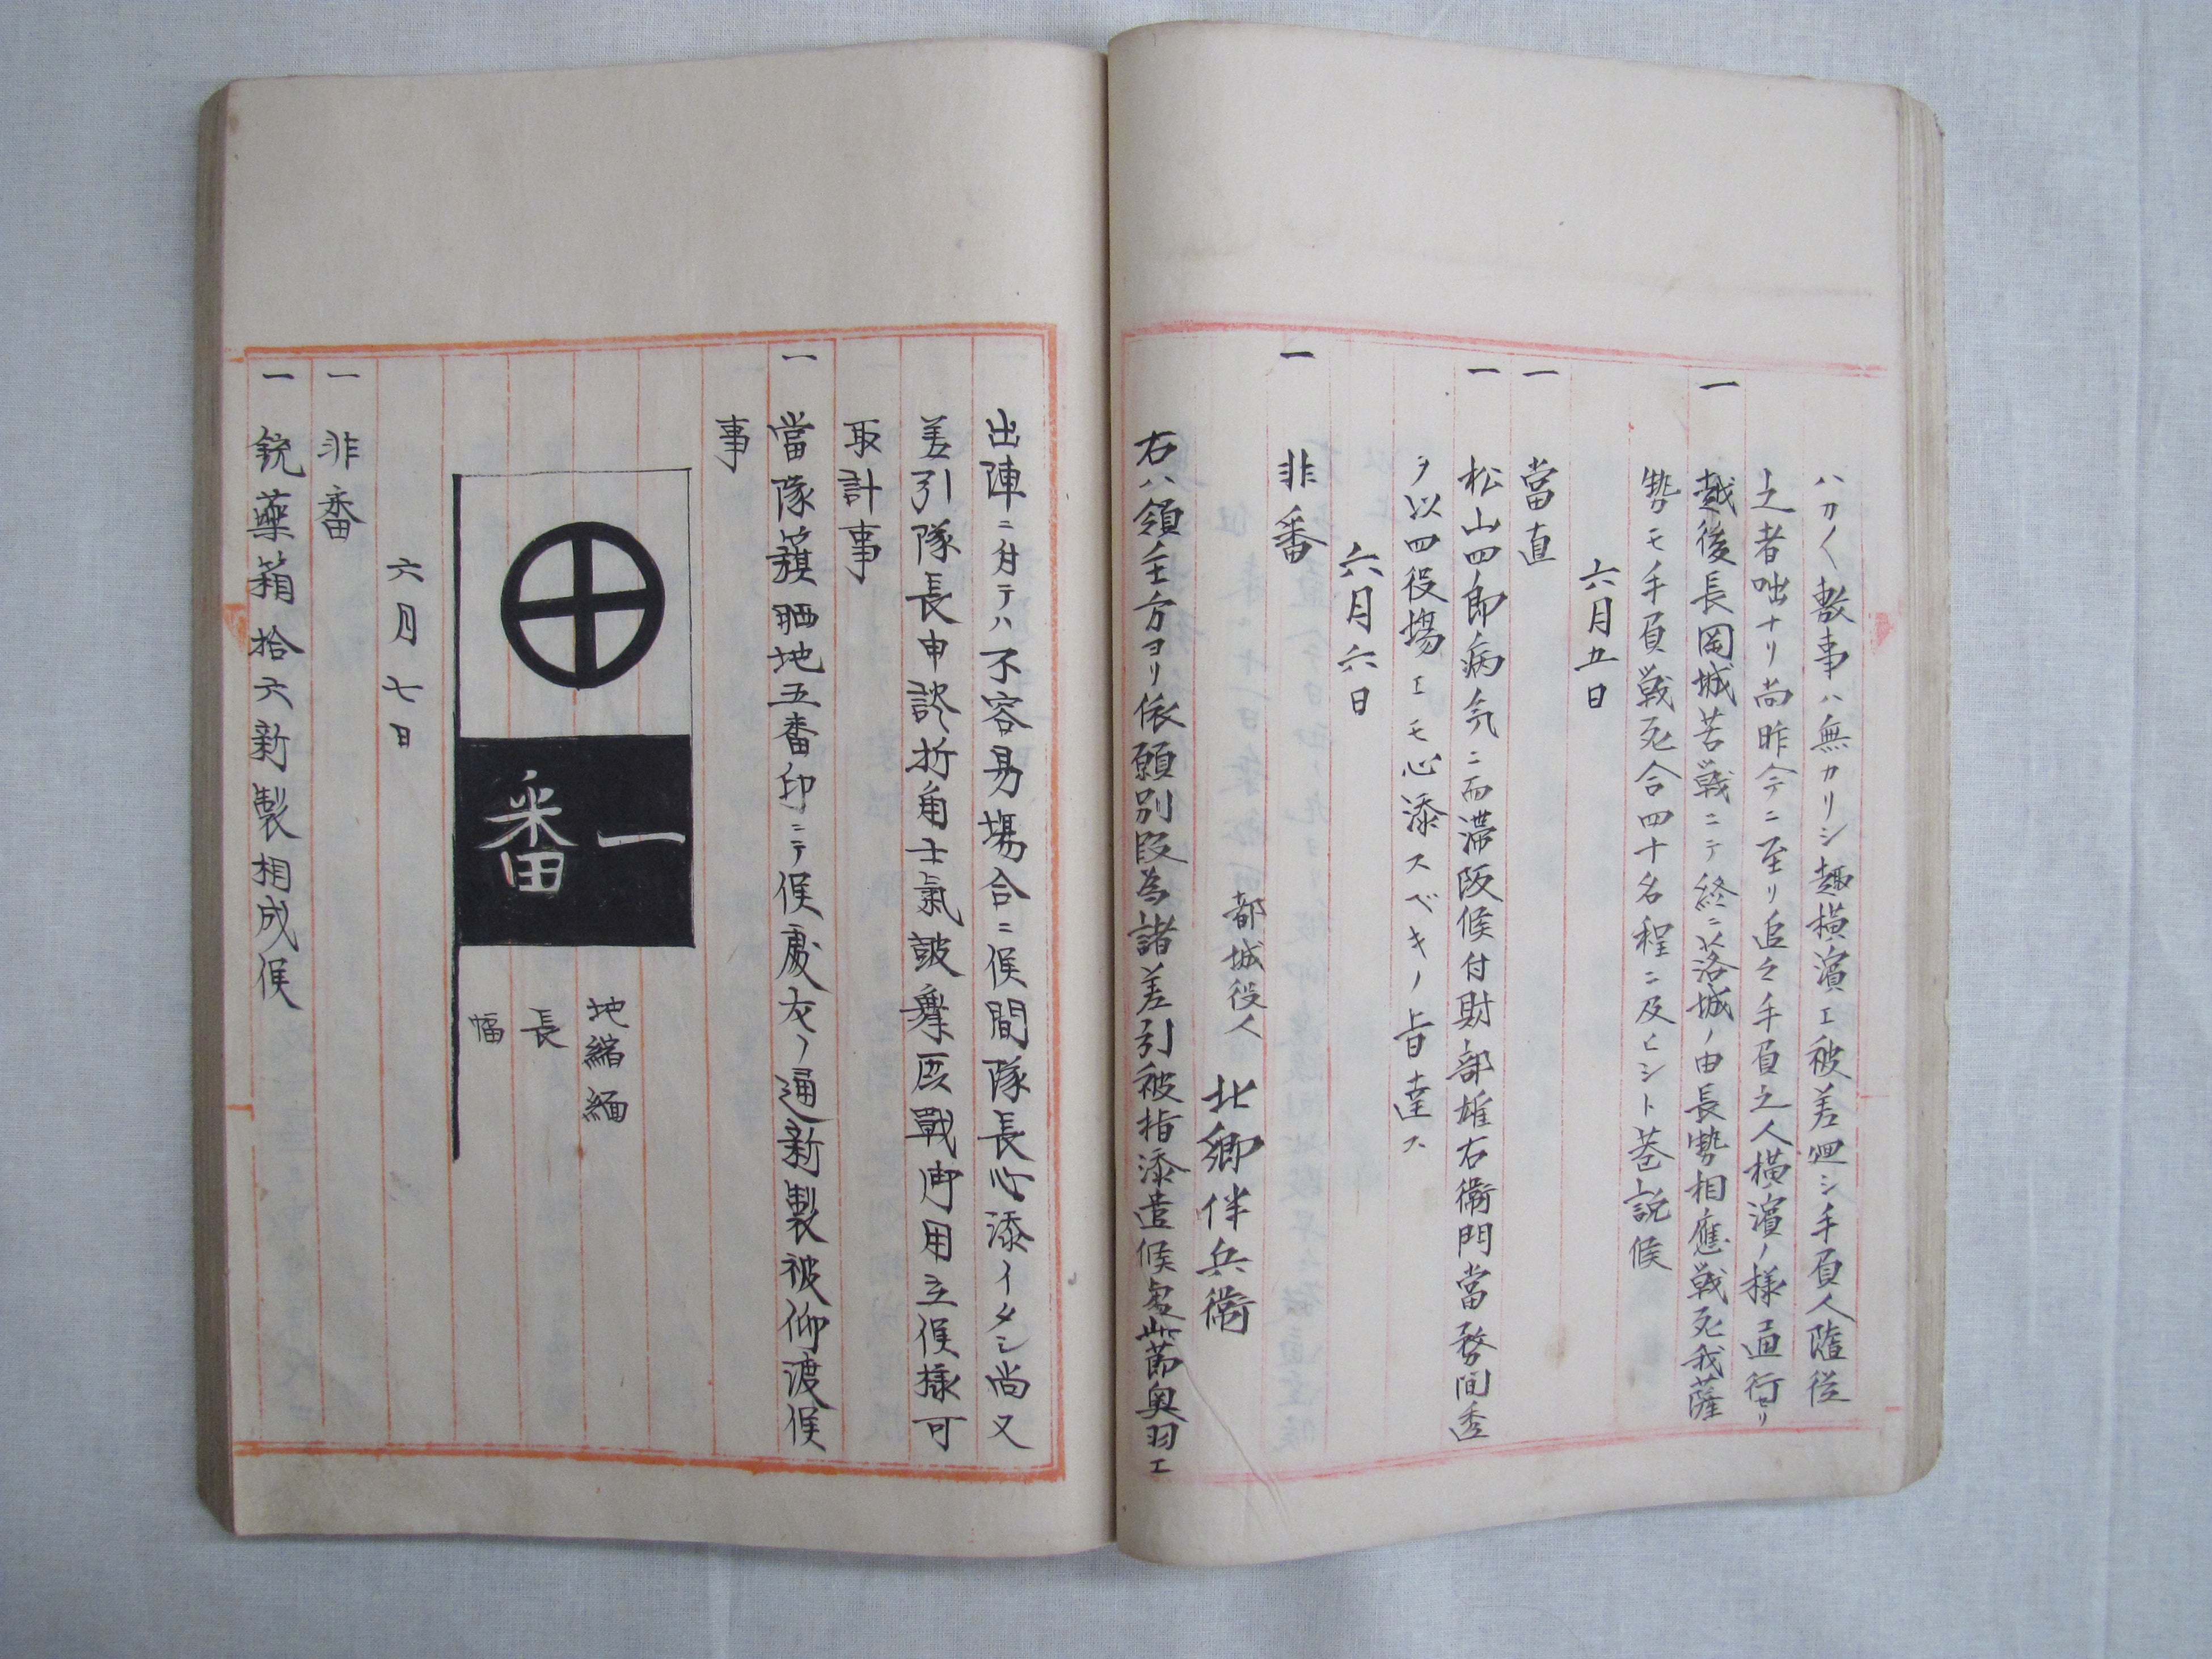 ハカ〱敷事ハ無カリシ趣横濱エ被差廻シ手負人隨從
之者咄ナリ尚昨今ニ至リ追々手負之人横濱ノ様通行セリ
一 越後長岡城苦戦ニテ終ニ落城ノ由長勢相應戦死我薩
勢モ手負戦死合四十名程ニ及ヒシト巷説候
六月五日
一 當直
一 松山四郎病気ニ而滞阪候付財部雄右衛門當務間透
ヲ以四役場エモ心添スベキノ旨達ス
六月六日
一 非番
都城役人 北郷伴兵衛
右ハ領主方ヨリ依願別段為諸差引被指添遣候處此節奥羽エ
出陣ニ付テハ不容易場合ニ候間隊長心添イタシ尚又
差引隊長申談折角士氣鼓舞 戰御用立候様可
取計事
一 當隊籏晒地五番印ニテ候處左ノ通新製被仰渡候
事
一番
地縮緬
長
幅
六月七日
一 非番
一 銃薬箱拾六新製相成候